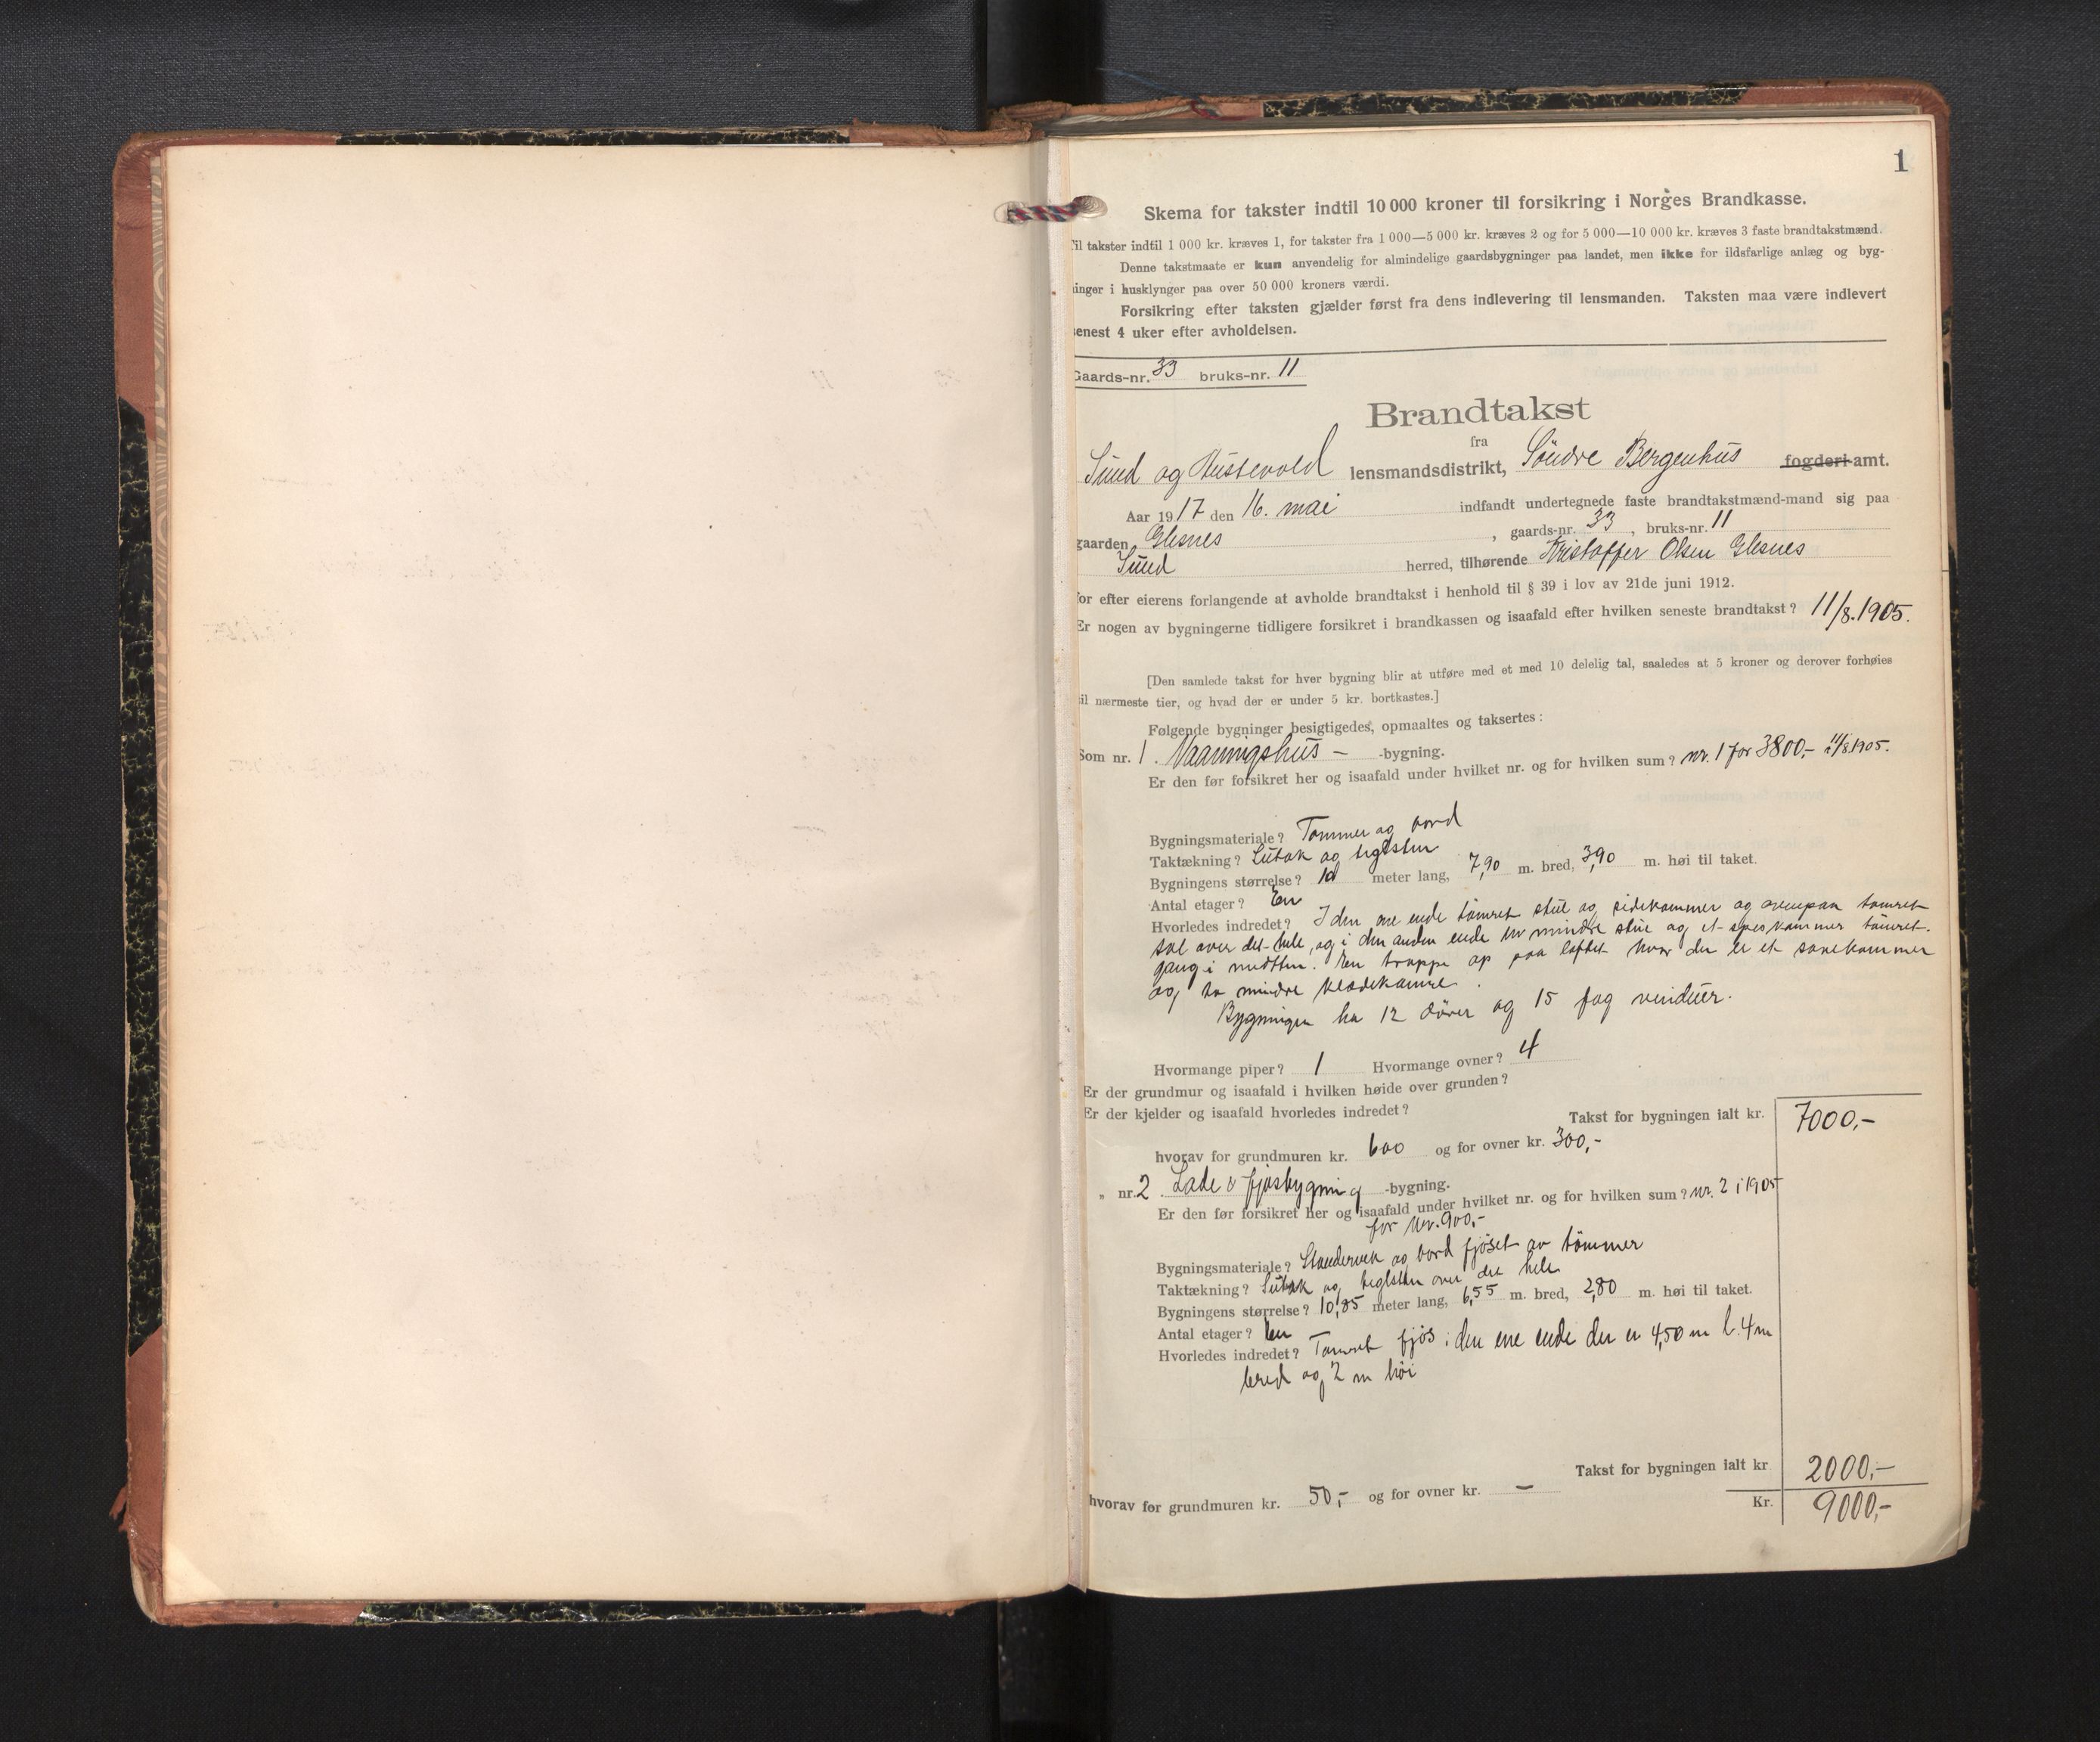 1
Skema for takster indtil 10 000 kroner til forsikring i Norges Brandkasse.
Til takster indtil 1 000 kr. kræves 1, for takster fra 1 000—5 000 kr. kræves 2 og for 5 000—10 000 kr. kræves 3 faste brandtakstmænd.
Denne takstmaate er kun anvendelig for almindelige gaardsbygninger paa landet, men ikke for ildsfarlige anlæg og byg-
ninger i husklynger paa over 50 000 kroners værdi.
Forsikring efter taksten gjælder først fra dens indlevering til lensmanden. Taksten maa være indlevert
senest 4 uker efter avholdelsen.
Gaards-nr. 33 bruks-nr. 11
Brandtakst
fra
Sund og Austevold lensmandsdistrikt, Söndre Bergenhus fogderi-amt.
Aar 1917 den 16. mai indfandt undertegnede faste brandtakstmænd-mand sig paa
gaarden Glesnes, gaards-nr. 33, bruks-nr. 11
Sund herred, tilhørende Kristoffer Olsen Glesnes
for efter eierens forlangende at avholde brandtakst i henhold til § 39 i lov av 21de juni 1912.
Er nogen av bygningerne tidligere forsikret i brandkassen og isaafald efter hvilken seneste brandtakst? 11/8.1905.
[Den samlede takst for hver bygning blir at utføre med et med 10 delelig tal, saaledes at 5 kroner og derover forhøies
til nærmeste tier, og hvad der er under 5 kr. bortkastes.]
Følgende bygninger besigtigedes, opmaaltes og taksertes:
Som nr. 1. Vaaningshus - -bygning.
Er den før forsikret her og isaafald under hvilket nr. og for hvilken sum? nr. 1 for 3800,- 11/8 1905.
Bygningsmateriale? Tömmer og bord
Taktækning? Sutak og teglsten
Bygningens størrelse? 10 meter lang, 7,90 m. bred, 3,90 m. høi til taket.
Antal etager? En
Hvorledes indredet? I den ene ende tömret stue og sidekammer og ovenpaa tömret
sal over det hele, og i den anden ende en mindre stue og et spiskammer tömret.
gang i midtten. En trappe op paa loftet hvor der er et sovekammer
og to mindre klædekamre.
Bygningen har 12 dörer og 15 fag vinduer.
Hvormange piper? 1 Hvormange ovner? 4
Er der grundmur og isaafald i hvilken høide over grunden?
Er der kjelder og isaafald hvorledes indredet?
Takst for bygningen ialt kr. 7000,-
hvorav for grundmuren kr. 600 og for ovner kr. 300,-
„ nr. 2. Lade & fjösbygning -bygning.
Er den før forsikret her og isaafald under hvilket nr. og for hvilken sum? nr. 2 i 1905
for kr. 900,-
Bygningsmateriale? Standerverk og bord fjöset av tömmer
Taktækning? Sutak og teglsten over det hele
Bygningens størrelse? 10,85 meter lang, 6,55 m. bred, 2,80 m. høi til taket.
Antal etager? En
Hvorledes indredet? Tömret fjös i den ene ende der er 4,50 m l. 4 m
bred og 2 m höi
Takst for bygningen ialt kr 2000,-
hvorav for grundmuren kr. 50,- og for ovner kr. -
Kr. 9000,-